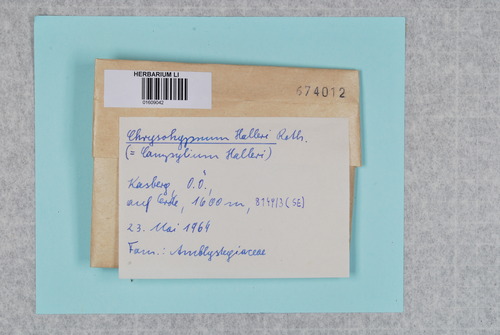 HERBARIUM LI
01609042
674012
Chrysohypnum Halleri Roth.
(= Campylium Halleri)
Kasberg, O.Ö.,
auf Erde, 1600 m, 8149/3 (SE)
23. Mai 1964
Fam.: Amblystegiaceae